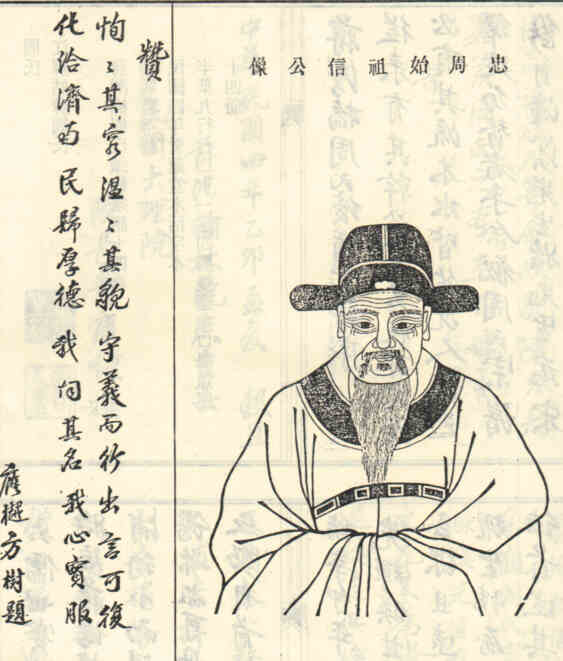 忠周始祖信公像
贊
恂〻其容溫〻其貌守義而行出言可復
化洽濟南民歸厚德我问其名我心實服
方樹題